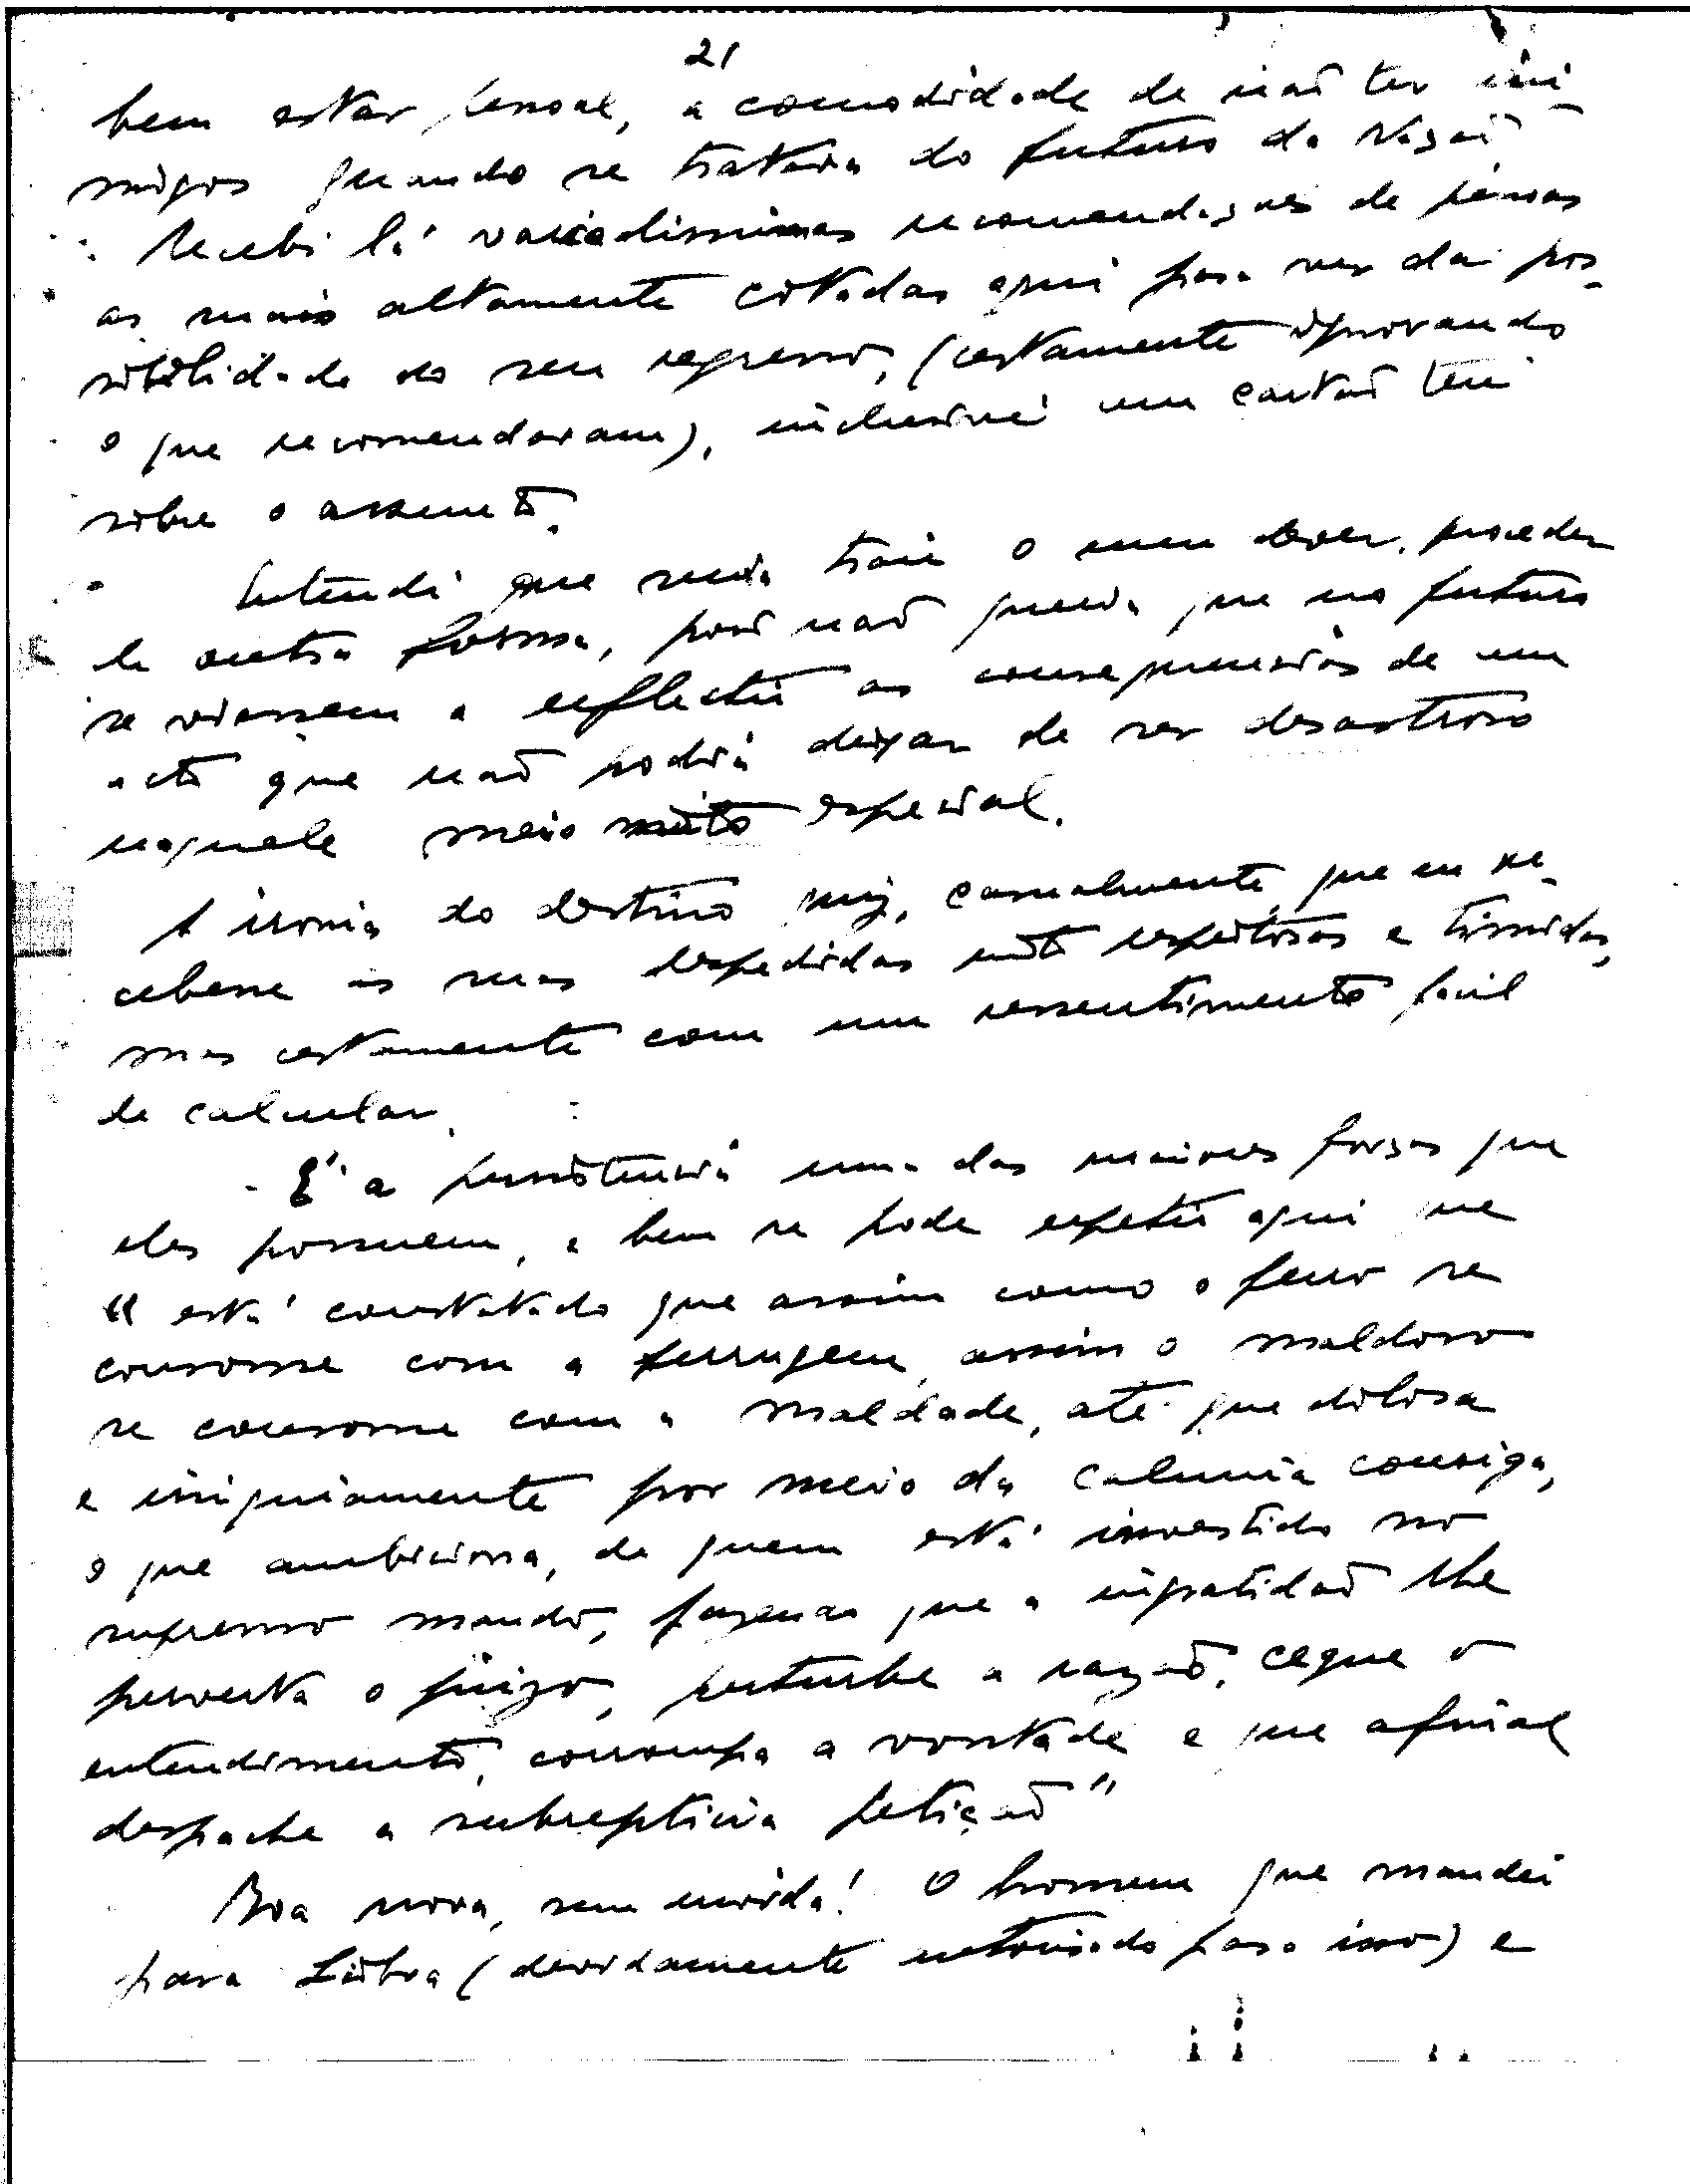 21
bem estar pessoal, a comodidade de não ter ini-
migos quando se tratava do futuro da Nação.
Recebi lá variadissimas recomendações de pessoas
as mais altamente cotadas aqui para ver da pos-
sibilidade do seu regresso, (certamente ignorando
o que recomendavam), inclusivé um cartão teu
sobre o assunto.
Entendi que seria trair o meu dever, proceder
de outra forma, pois não queria que no futuro
se viessem a reflectir as consequencias de um
acto que não podia deixar de ser desastroso
naquele meio muito especial.
A ironia do destino quiz, casualmente, que eu re-
cebesse as suas despedidas muito respeitosas e timidas,
mas certamente com um ressentimento facil
de calcular.
E' a persistencia uma das maiores forças que
eles possuem, e bem se pode repetir aqui que
"está constatado que assim como o ferro se
consome com a ferrugem, assim o maldoso
se consome com a maldade, até que dolosa
e iniquiamente por meio da calunia consiga,
o que ambiciona, de quem está investido no
supremo mando, fazendo que a ingratidão lhe
perverta o juizo, perturbe a razão, cegue o
entendimento, corrompa a vontade e que afinal
despache a subrepticia petição"
Boa nova, sem duvida! O homem que mandei
para Lisboa (devidamente autorisado para isso) e